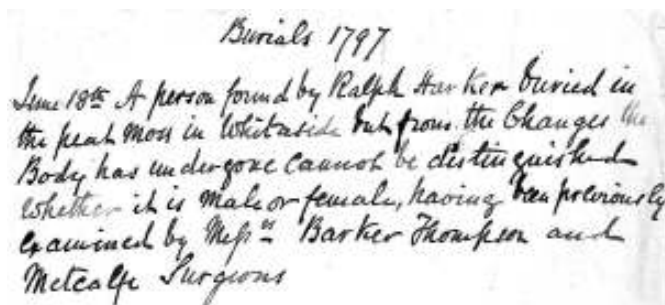 Burials 1797
June 18th A person found by Ralph Harker buried in
the peat moss in Whitaside but from the Changes the
Body has undergone cannot be distinguished
whether it is male or female, having been previously
examined by Messrs Barker Thompson and
Metcalfe Surgeons